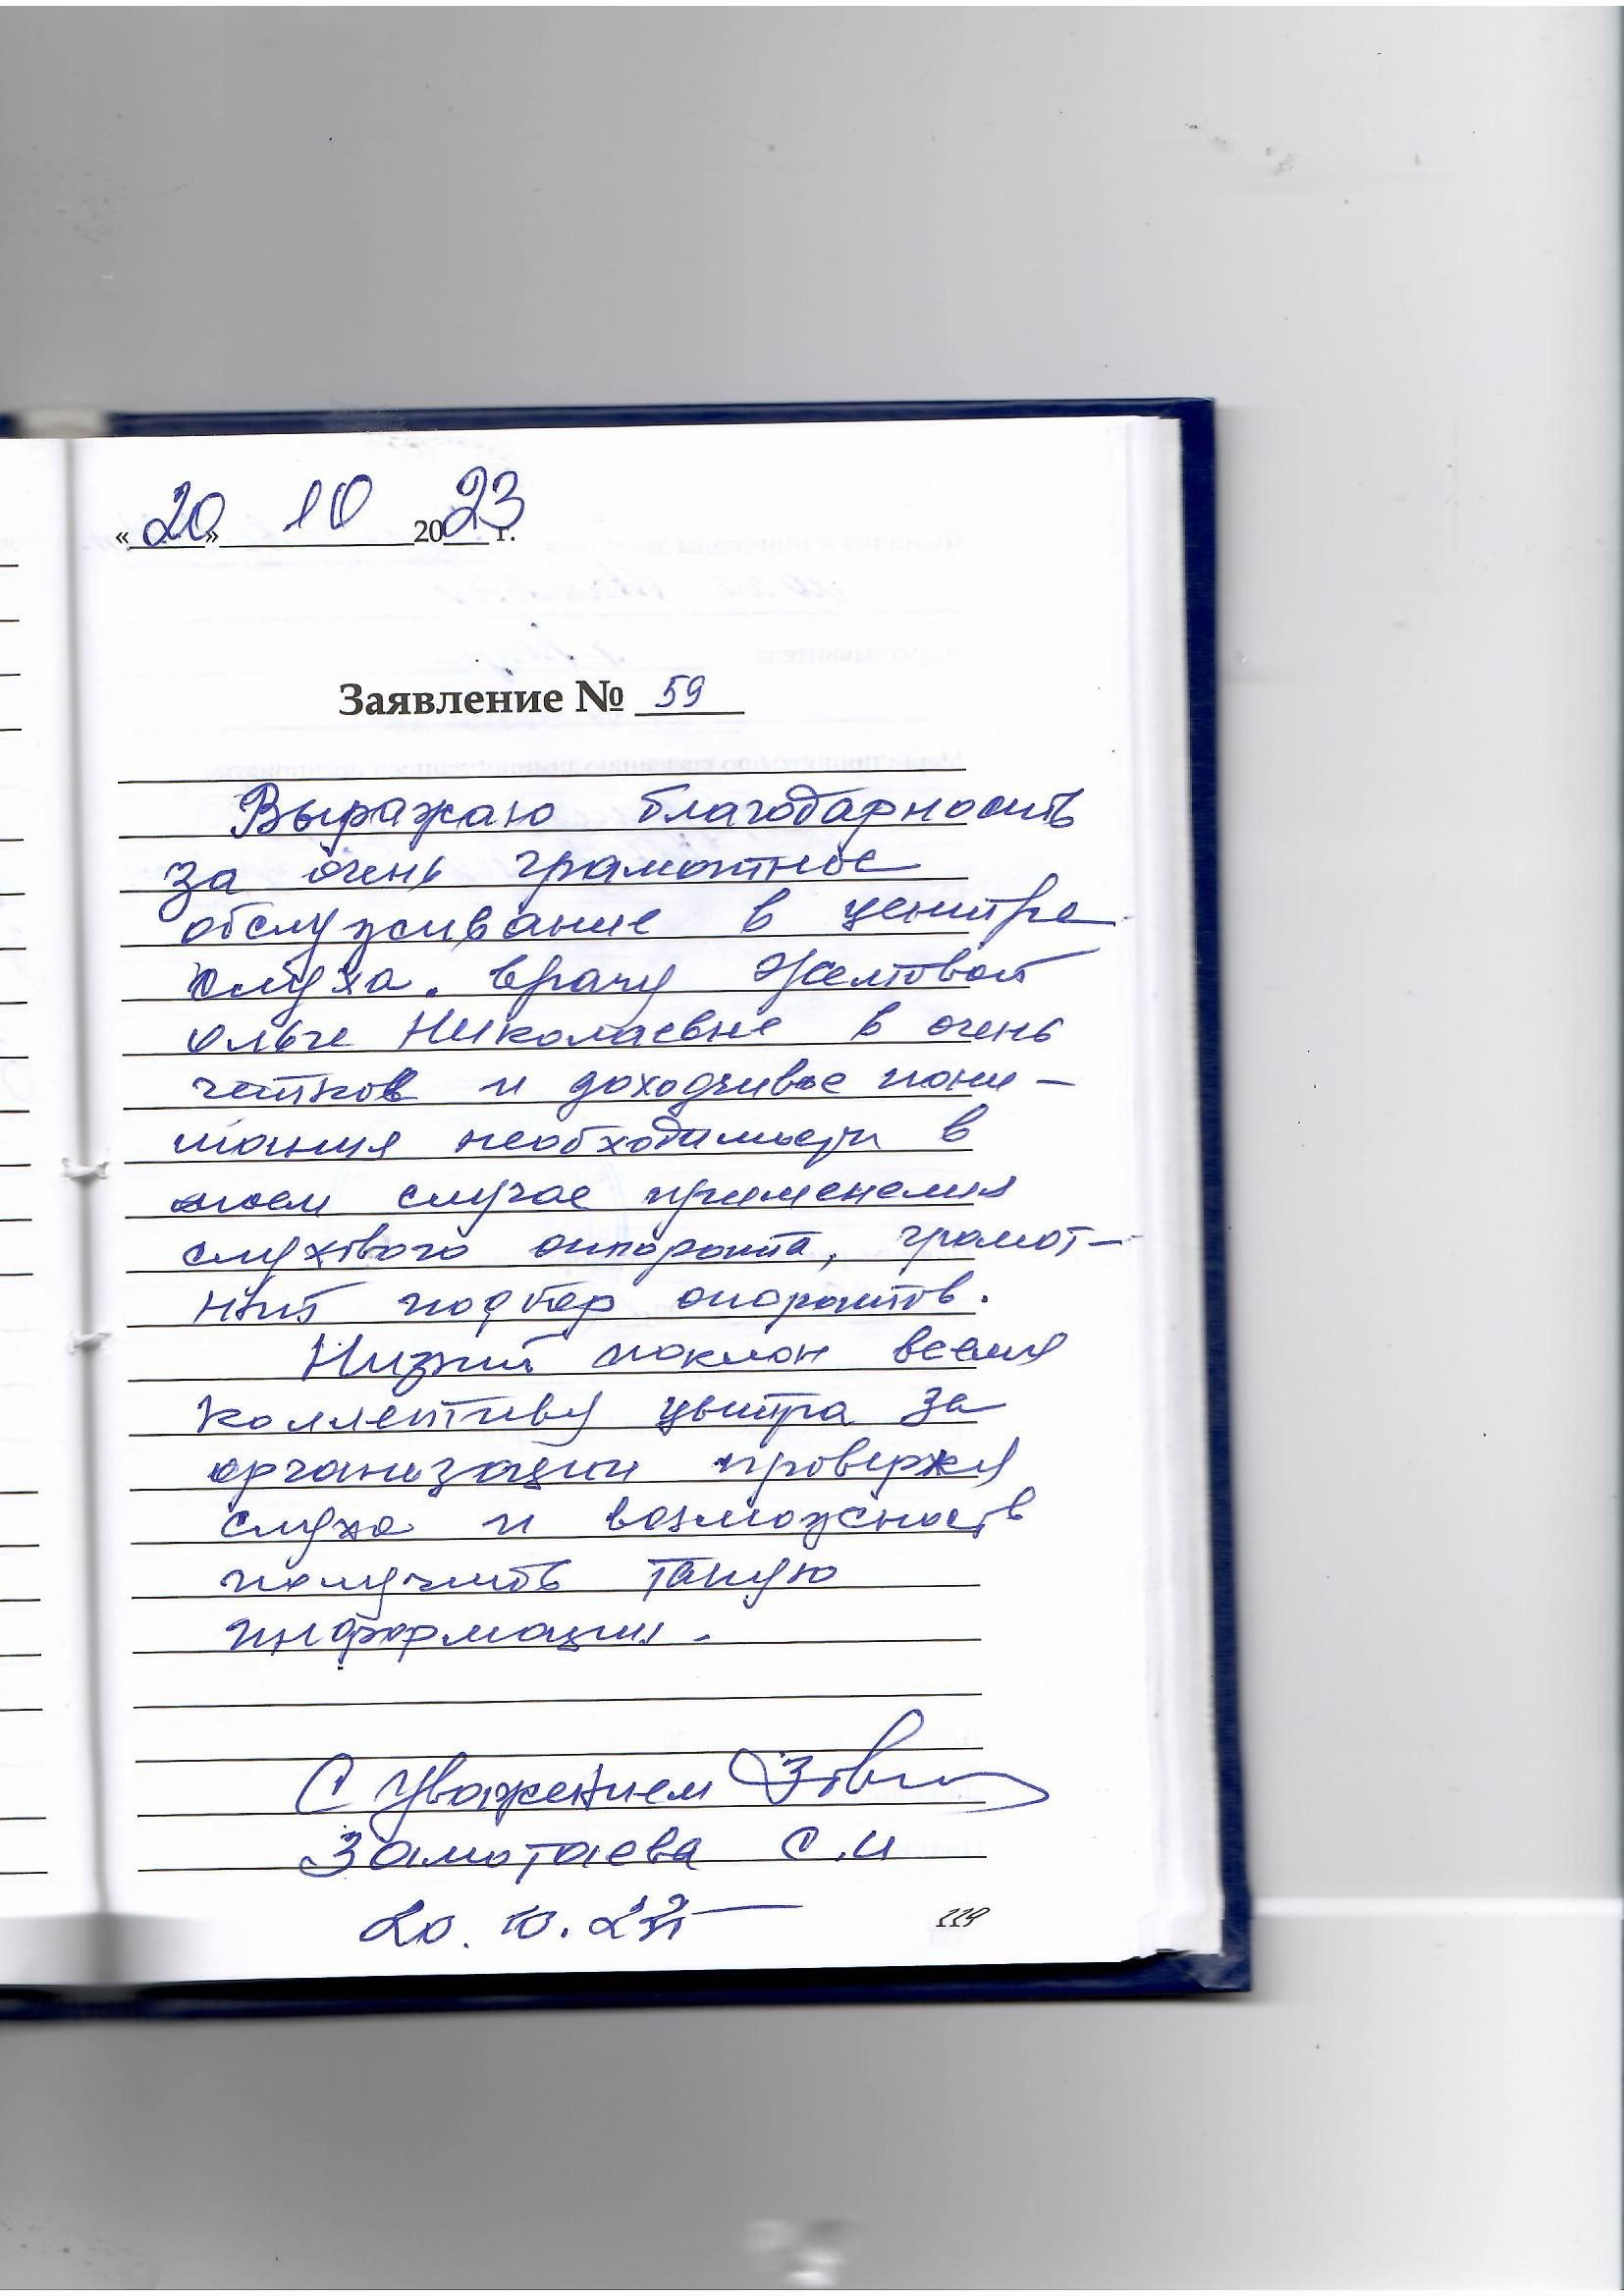 «20» 10 2023 г.
Заявление № 59
Выражаю благодарность
за очень грамотное
обслуживание в центре
слуха. врачу Желтовой
Ольге Николаевне в очень
четкое и доходчивое пони-
мания необходимости в
моем случае применения
слухового аппарата, грамот-
ный подбор апаратов.
Низкий поклон всему
коллективу центра за
организации проверки
слуха и возможность
получить такую
информацию.
С уважением
Замотаева С.И
20.10.23г